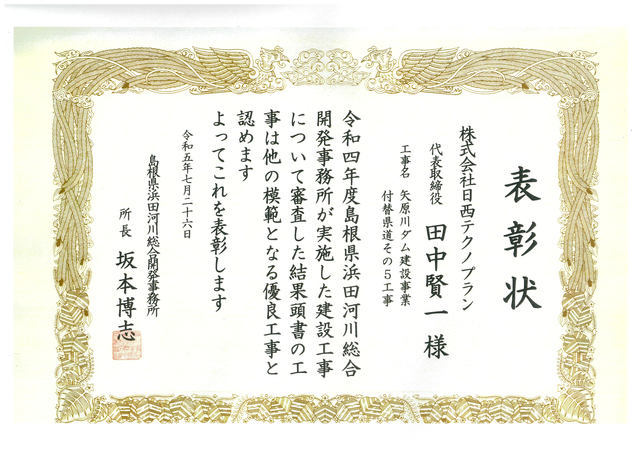 表彰状
株式会社日西テクノプラン
代表取締役 田中賢一様
工事名 矢原川ダム建設事業
付替県道その5工事
令和四年度島根県浜田河川総合
開発事務所が実施した建設工事
について審査した結果頭書の工
事は他の模範となる優良工事と
認めます
よってこれを表彰します
令和五年七月二十六日
島根県浜田河川総合開発事務所
所長 坂本博志